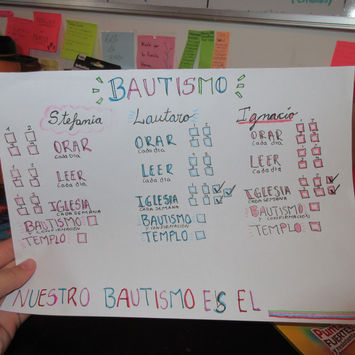 BAUTISMO
Stefania
1 2
ORAR
Cada día
LEER
Cada día
IGLESIA
CADA SEMANA
BAUTISMO
Y CONFIRMACIÓN
TEMPLO
Lautaro
ORAR
Cada día
LEER
Cada día
IGLESIA
CADA SEMANA
BAUTISMO
Y CONFIRMACIÓN
TEMPLO
Ignacio
1 2
ORAR
Cada día
LEER
Cada día
IGLESIA
CADA SEMANA
BAUTISMO
CONFIRMACIÓN
TEMPLO
NUESTRO BAUTISMO ES EL